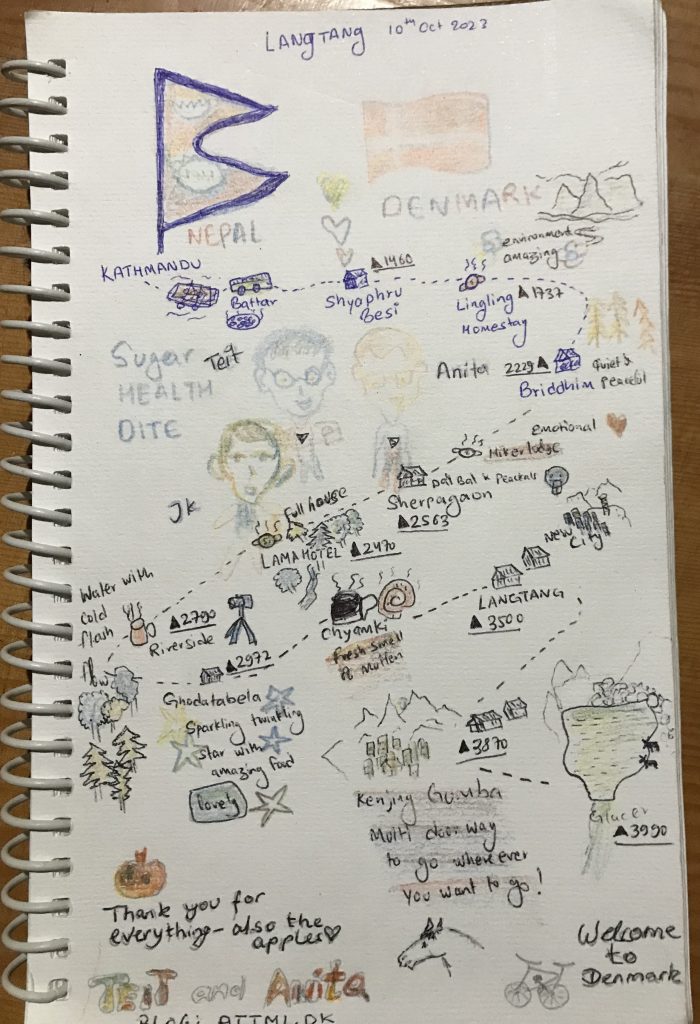 LANGTANG 10th Oct 2023
NEPAL
DENMARK
environment
amazing
KATHMANDU
Battar
▲1460
Shyaphru
Besi
Lingling ▲1737
Homestay
Sugar
HEALTH
DITE
Teit
Anita
2229▲
Briddhim
Quiet &
Peaceful
emotional
Hikerlodge
Dall Bat & Packals
Sherpagaon
▲2563
JK
Full house
LAMA HOTEL
▲2470
New
City
LANGTANG
▲3500
Water with
cold
flash
▲2790
Riverside
Chyamki
Fresh Smell
of Mutten
flow
▲2972
Ghodatabela
Sparkling twinkling
star with
amazing food
lovely
▲3870
Kenjing Gumba
Multi door way
to go where ever
you want to go!
Glacer
▲3990
Thank you for
everything - also the
apples
Welcome
to
Denmark
TEIT and Anita
BLOG: ATTMI.DK